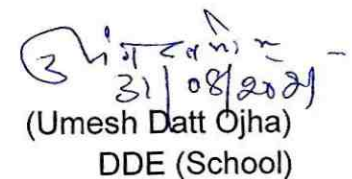 31/08/2021
(Umesh Datt Ojha)
DDE (School)